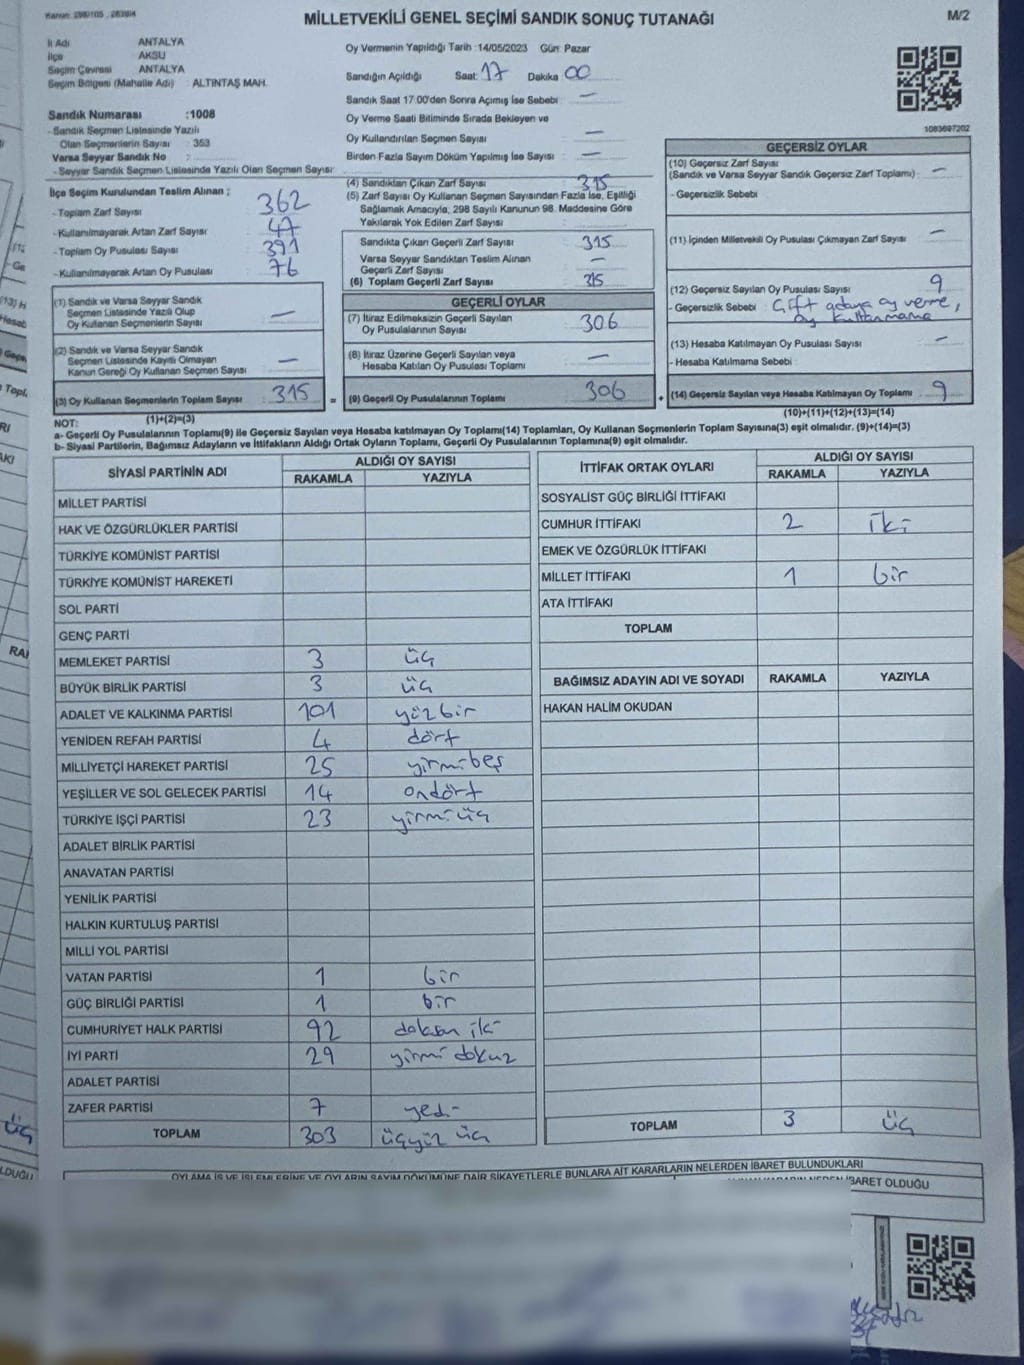 MİLLETVEKİLİ GENEL SEÇİMİ SANDIK SONUÇ TUTANAĞI
M/2
İl Adı ANTALYA
İlçe AKSU
Seçim Çevresi ANTALYA
Seçim Bölgesi (Mahalle Adı) : ALTINTAŞ MAH.
Oy Vermenin Yapıldığı Tarih :14/05/2023 Gün: Pazar
Sandığın Açıldığı Saat: 17 Dakika 00
Sandık Saat 17:00'den Sonra Açımış İse Sebebi : —
Oy Verme Saati Bitiminde Sırada Bekleyen ve
Oy Kullandırılan Seçmen Sayısı —
Birden Fazla Sayım Döküm Yapılmış İse Sayısı : —
1083697202
Sandık Numarası :1008
- Sandık Seçmen Listesinde Yazılı
Olan Seçmenlerin Sayısı : 353
Varsa Seyyar Sandık No :
- Seyyar Sandık Seçmen Listesinde Yazılı Olan Seçmen Sayısı
İlçe Seçim Kurulundan Teslim Alınan ;
- Toplam Zarf Sayısı 362
- Kullanılmayarak Artan Zarf Sayısı 47
- Toplam Oy Pusulası Sayısı 391
- Kullanılmayarak Artan Oy Pusulası 76
(1) Sandık ve Varsa Seyyar Sandık
Seçmen Listesinde Yazılı Olup
Oy Kullanan Seçmenlerin Sayısı —
(2) Sandık ve Varsa Seyyar Sandık
Seçmen Listesinde Kayıtlı Olmayan
Kanun Gereği Oy Kullanan Seçmen Sayısı —
(3) Oy Kullanan Seçmenlerin Toplam Sayısı 315
(1)+(2)=(3)
(4) Sandıktan Çıkan Zarf Sayısı 315
(5) Zarf Sayısı Oy Kullanan Seçmen Sayısından Fazla İse, Eşitliği
Sağlamak Amacıyla, 298 Sayılı Kanunun 98. Maddesine Göre
Yakılarak Yok Edilen Zarf Sayısı :
Sandıkta Çıkan Geçerli Zarf Sayısı 315
Varsa Seyyar Sandıktan Teslim Alınan
Geçerli Zarf Sayısı —
(6) Toplam Geçerli Zarf Sayısı 315
GEÇERLİ OYLAR
(7) İtiraz Edilmeksizin Geçerli Sayılan
Oy Pusulalarının Sayısı 306
(8) İtiraz Üzerine Geçerli Sayılan veya
Hesaba Katılan Oy Pusulası Toplamı —
= (9) Geçerli Oy Pusulalarının Toplamı 306 +
GEÇERSİZ OYLAR
(10) Geçersiz Zarf Sayısı
(Sandık ve Varsa Seyyar Sandık Geçersiz Zarf Toplamı) : —
- Geçersizlik Sebebi :
(11) İçinden Milletvekili Oy Pusulası Çıkmayan Zarf Sayısı —
(12) Geçersiz Sayılan Oy Pusulası Sayısı 9
- Geçersizlik Sebebi : Çift adaya oy verme,
oy kullanmama
(13) Hesaba Katılmayan Oy Pusulası Sayısı —
- Hesaba Katılmama Sebebi :
(14) Geçersiz Sayılan veya Hesaba Katılmayan Oy Toplamı 9
(10)+(11)+(12)+(13)=(14)
NOT:
a- Geçerli Oy Pusulalarının Toplamı(9) ile Geçersiz Sayılan veya Hesaba katılmayan Oy Toplamı(14) Toplamları, Oy Kullanan Seçmenlerin Toplam Sayısına(3) eşit olmalıdır. (9)+(14)=(3)
b- Siyasi Partilerin, Bağımsız Adayların ve İttifakların Aldığı Ortak Oyların Toplamı, Geçerli Oy Pusulalarının Toplamına(9) eşit olmalıdır.
SİYASİ PARTİNİN ADI ALDIĞI OY SAYISI
RAKAMLA YAZIYLA
MİLLET PARTİSİ
HAK VE ÖZGÜRLÜKLER PARTİSİ
TÜRKİYE KOMÜNİST PARTİSİ
TÜRKİYE KOMÜNİST HAREKETİ
SOL PARTİ
GENÇ PARTİ
MEMLEKET PARTİSİ 3 üç
BÜYÜK BİRLİK PARTİSİ 3 üç
ADALET VE KALKINMA PARTİSİ 101 yüzbir
YENİDEN REFAH PARTİSİ 4 dört
MİLLİYETÇİ HAREKET PARTİSİ 25 yirmibeş
YEŞİLLER VE SOL GELECEK PARTİSİ 14 ondört
TÜRKİYE İŞÇİ PARTİSİ 23 yirmiüç
ADALET BİRLİK PARTİSİ
ANAVATAN PARTİSİ
YENİLİK PARTİSİ
HALKIN KURTULUŞ PARTİSİ
MİLLİ YOL PARTİSİ
VATAN PARTİSİ 1 bir
GÜÇ BİRLİĞİ PARTİSİ 1 bir
CUMHURİYET HALK PARTİSİ 92 doksan iki
İYİ PARTİ 29 yirmi dokuz
ADALET PARTİSİ
ZAFER PARTİSİ 7 yedi
TOPLAM 303 üçyüz üç
İTTİFAK ORTAK OYLARI ALDIĞI OY SAYISI
RAKAMLA YAZIYLA
SOSYALİST GÜÇ BİRLİĞİ İTTİFAKI
CUMHUR İTTİFAKI 2 iki
EMEK VE ÖZGÜRLÜK İTTİFAKI
MİLLET İTTİFAKI 1 bir
ATA İTTİFAKI
TOPLAM
BAĞIMSIZ ADAYIN ADI VE SOYADI RAKAMLA YAZIYLA
HAKAN HALİM OKUDAN
TOPLAM 3 üç
OYLAMA İŞ VE İŞLEMLERİNE VE OYLARIN SAYIM DÖKÜMÜNE DAİR ŞİKAYETLERLE BUNLARA AİT KARARLARIN NELERDEN İBARET BULUNDUKLARI
İBARET OLDUĞU